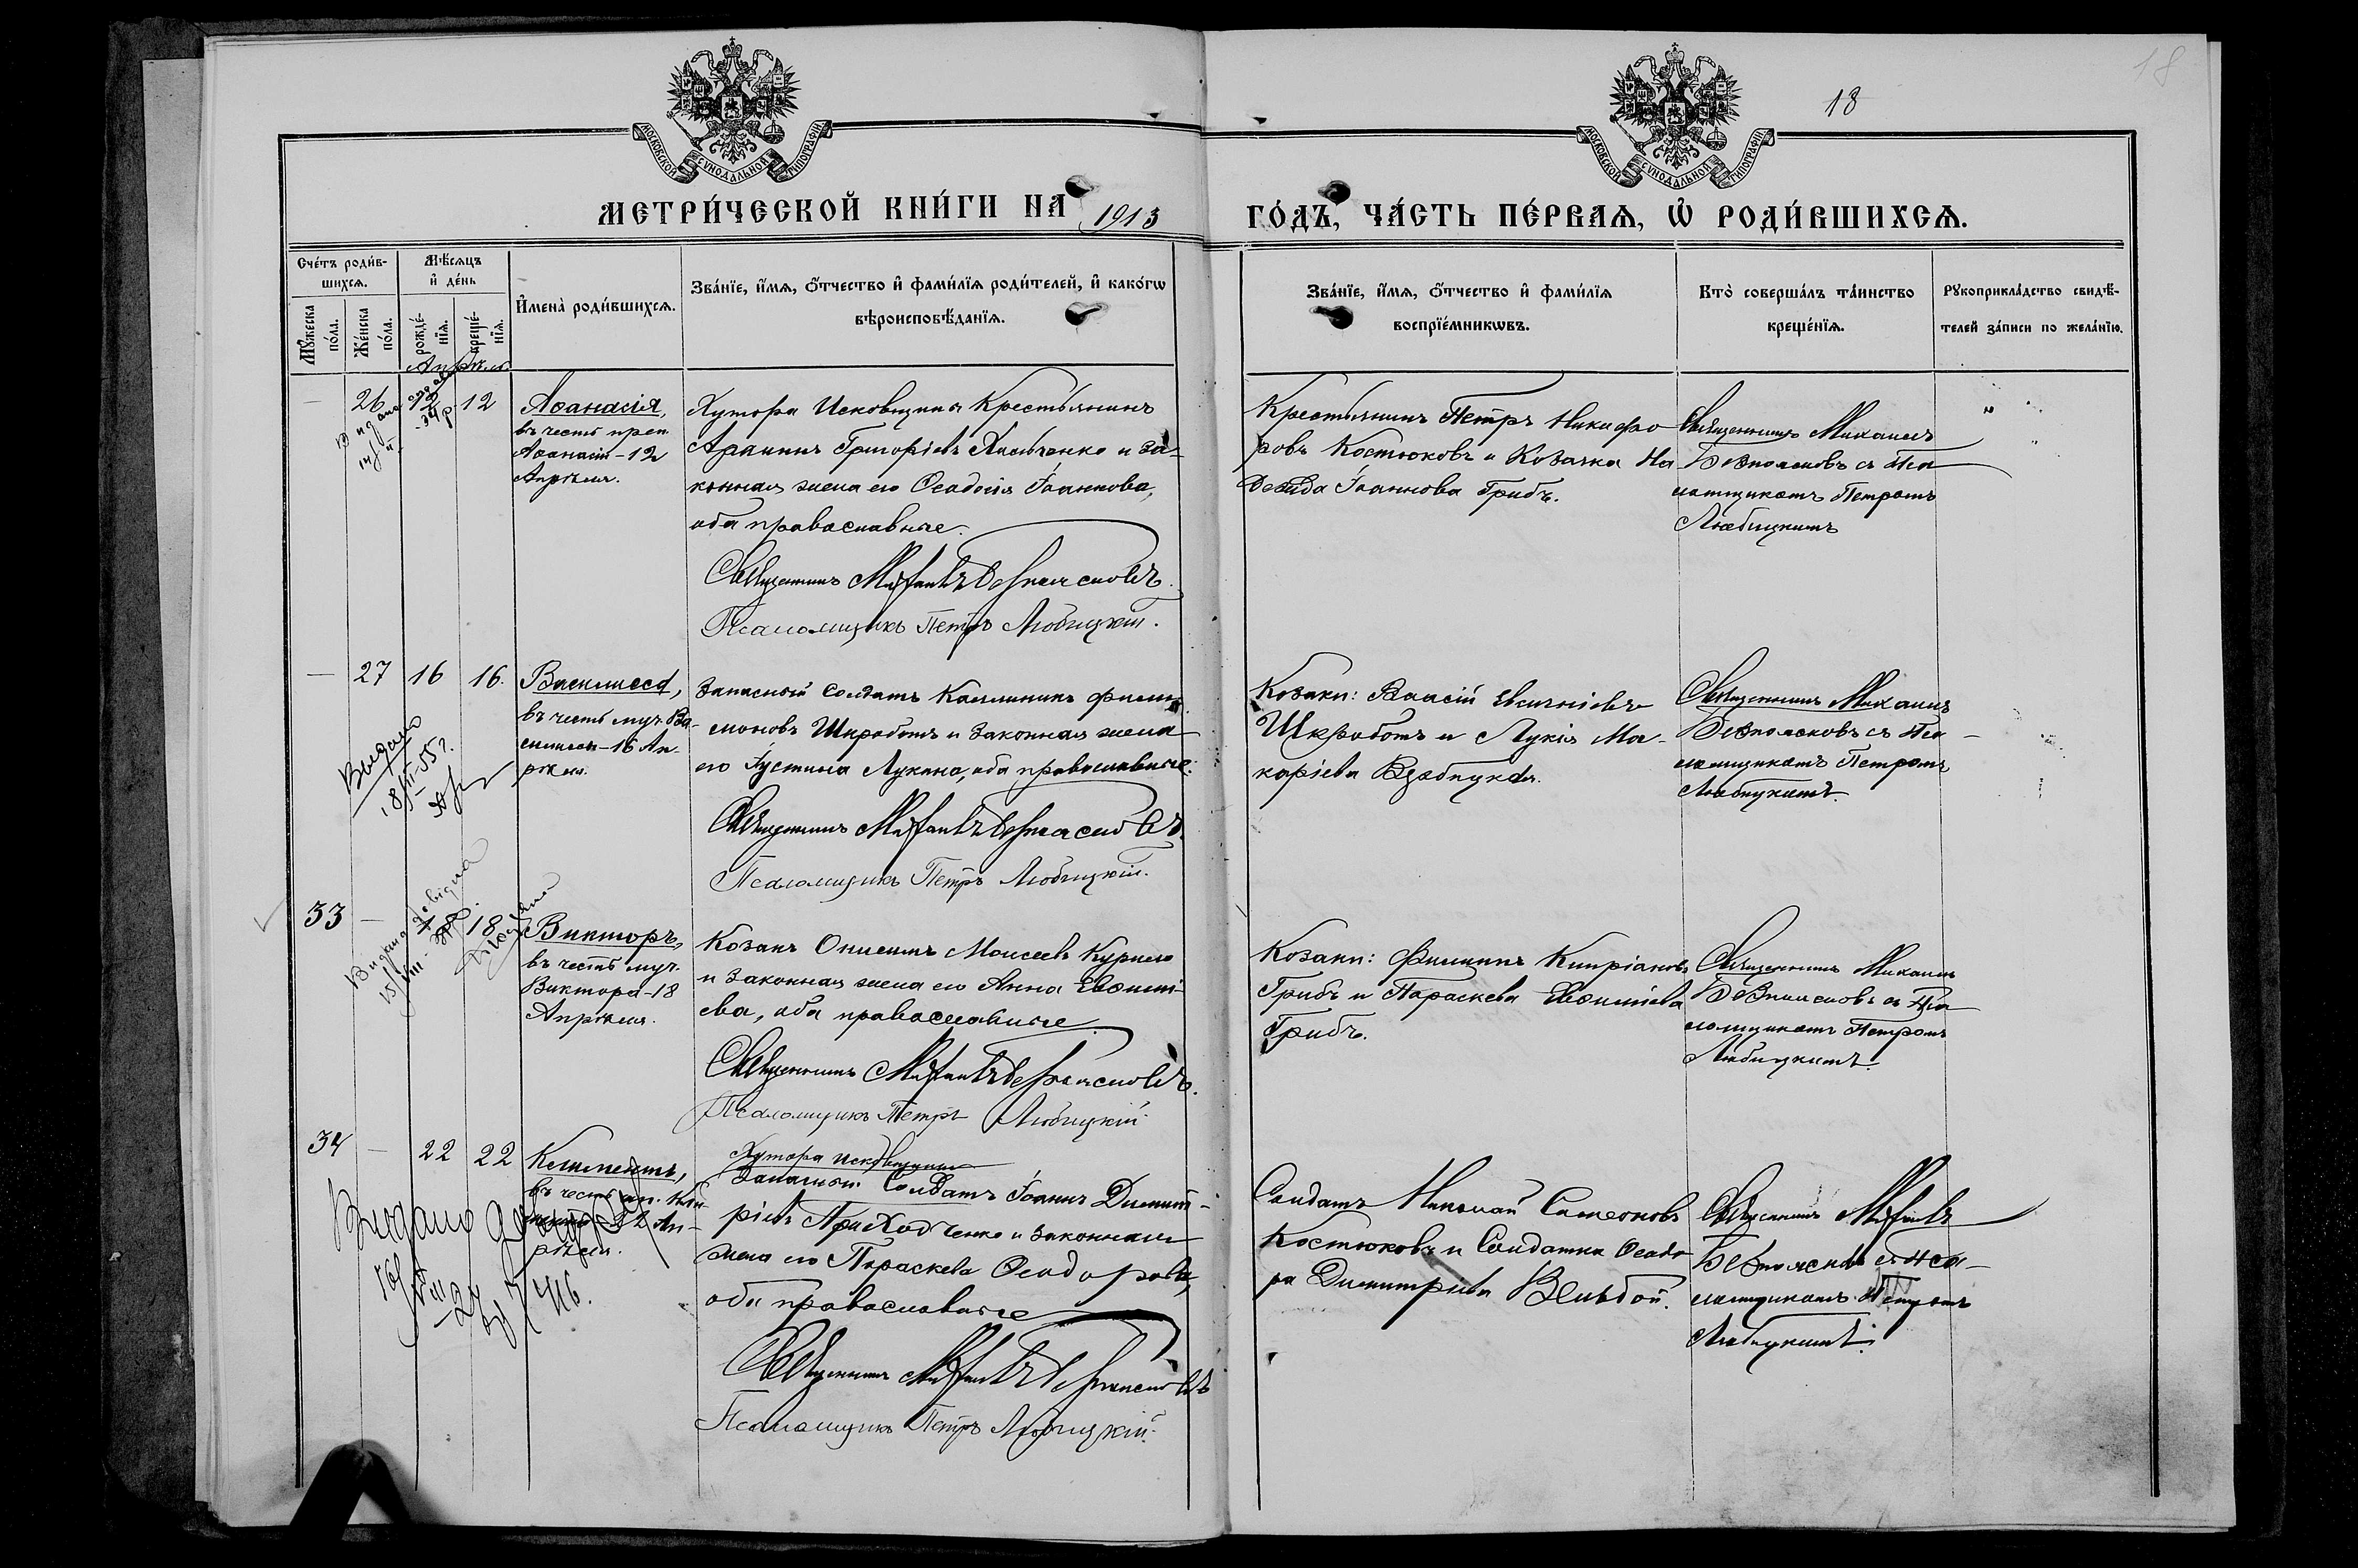 18
18
МОСКОВСКОЙ СѴНОДАЛЬНОЙ ТИПОГРАФІИ
МОСКОВСКОЙ СѴНОДАЛЬНОЙ ТИПОГРАФІИ
МЕТРИ́ЧЕСКОЙ КНИ́ГИ НА 1913
ГО́ДЪ, ЧА́СТЬ ПЕ́РВАѦ, Ѡ҆ РОДИ́ВШИХСѦ.
Сче́тъ роди́в-
шихсѧ.
Мѣ́сѧцъ
и҆ де́нь
Мꙋ́жеска
по́ла.
Же́нска
по́ла.
рожде́-
нїѧ.
креще́-
нїѧ.
И҆мена̀ роди́вшихсѧ.
Зва́нїе, и҆́мѧ, ѻ҆́тчество и҆ фами́лїѧ роди́телей, и҆ како́гѡ
вѣроисповѣ́данїѧ.
Зва́нїе, и҆́мѧ, ѻ҆́тчество и҆ фами́лїѧ
воспрїе́мникѡвъ.
Кто̀ соверша́лъ та́инство
креще́нїѧ.
Рꙋкоприкла́дство свидѣ́-
телей за́писи по жела́нїю.
Апрѣль
26 12 12
Аѳанасія,
въ честь преп.
Аѳанасіи - 12
Апрѣля.
Хутора Исковщины Крестьянинъ
Архиппъ Григоріевъ Хильченко и за-
конная жена его Ѳеодосія Іоаннова,
оба православные.
Священникъ Михаилъ Безпоясновъ.
Псаломщикъ Петръ Любицкій.
Крестьянинъ Петръ Никифо
ровъ Костюковъ и Козачка На
дежда Іоаннова Грибъ.
Священникъ Михаилъ
Безпоясновъ съ Пса
ломщикомъ Петромъ
Любицкимъ
— 27 16 16.
Василисса,
въ честь муч. Ва-
силиссы - 16 Ап-
рѣля.
Видано
Запасный Солдатъ Каллиникъ Фили
моновъ Шкработъ и законная жена
его Іустина Лукина, оба православные.
Священникъ Михаилъ Безпоясновъ.
Псаломщикъ Петръ Любицкій.
Козаки: Власій
Шкработъ и Лукія Ма-
каріева
Священникъ Михаилъ
Безпоясновъ съ Пса
ломщикомъ Петромъ
Любицкимъ.
33 — 18 18
Викторъ,
въ честь муч.
Виктора - 18
Апрѣля.
Козакъ Онисимъ Моисеевъ
и законная жена его Анна Евѳимі-
ева, оба православные
Священникъ Михаилъ Безпоясновъ.
Псаломщикъ Петръ Любицкій
Козаки: Филиппъ Кипріановъ
Грибъ и Параскева Евѳиміева
Грибъ.
Священникъ Михаилъ
Безпоясновъ съ Пса
ломщикомъ Петромъ
Любицкимъ.
34 — 22 22
Климентъ,
въ честь
22 Ап-
рѣля.
Видано
Хутора Исковщины
Запасный Солдатъ Іоаннъ Димит-
ріевъ Приходченко и законная
жена его Параскева Ѳеодорова,
оба православные
Священникъ Михаилъ Безпоясновъ
Псаломщикъ Петръ Любицкій.
Солдатъ Николай Симеоновъ
Костюковъ и Солдатка Ѳеодо
ра Димитріева
Священникъ Михаилъ
Безпоясновъ съ Пса-
ломщикомъ Петромъ
Любицкимъ.